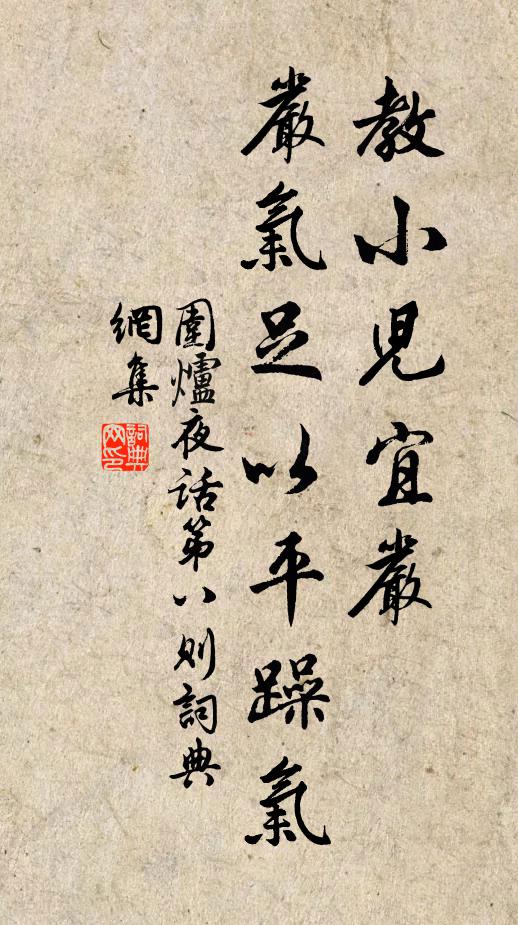 教小児宜嚴
嚴氣足以平躁氣
圍爐夜话第八则詞典
網集
詞典网印